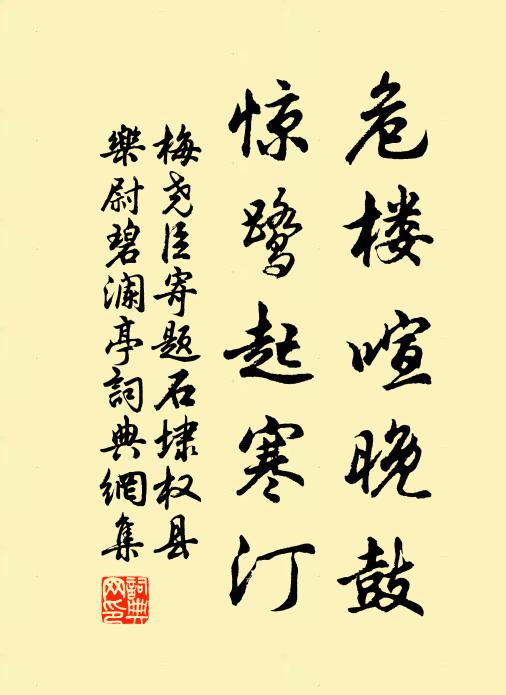 危楼喧晚鼓
惊鹭起寒汀
梅尧臣寄题石埭权县
樂尉碧澜亭詞典網集
詞典网印